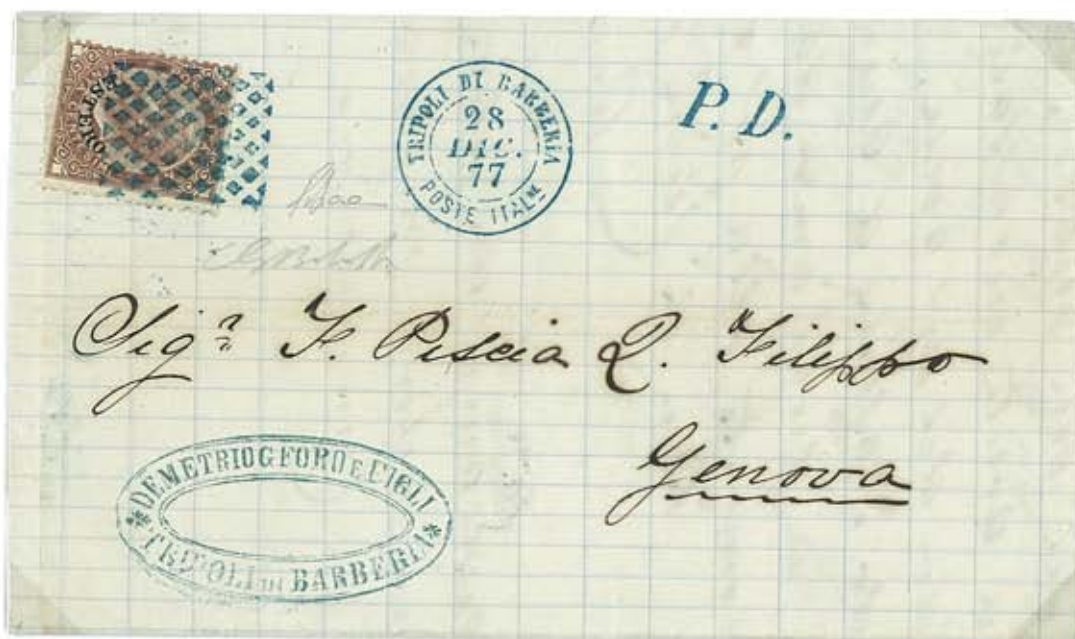 ESTERO
TRIPOLI DI BARBERIA
28
DIC.
77
POSTE ITALNE
P. D.
Sigr F. Piscia Q. Filippo
Genova
* DEMETRIO G FORO E FIGLI *
TRIPOLI DI BARBERIA